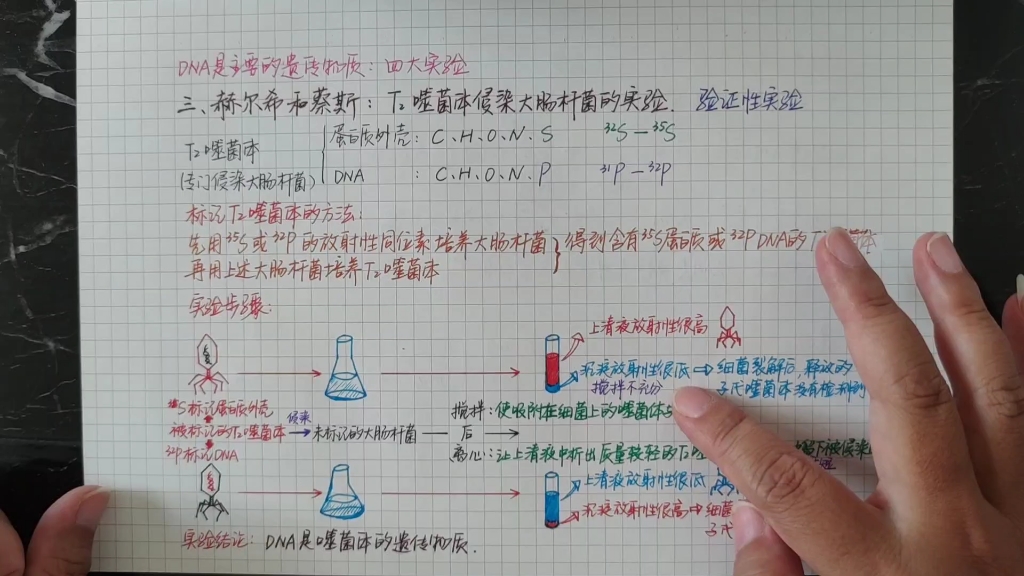 DNA是主要的遗传物质：四大实验
三、赫尔希和蔡斯：T₂噬菌体侵染大肠杆菌的实验. 验证性实验
T₂噬菌体
(专门侵染大肠杆菌)
蛋白质外壳：C、H、O、N、S ³²S—³⁵S
DNA ：C、H、O、N、P ³¹P—³²P
标记T₂噬菌体的方法：
先用³⁵S或³²P的放射性同位素培养大肠杆菌
再用上述大肠杆菌培养T₂噬菌体
得到含有³⁵S蛋白质或³²P DNA的
实验步骤：
上清液放射性很高
沉淀放射性很低→细菌裂解后，释放的
搅拌不充分 子代噬菌体没有检测到
³⁵S标记蛋白质外壳
搅拌：使吸附在细菌上的噬菌体与
被标记的T₂噬菌体 侵染 未标记的大肠杆菌 后
³²P标记DNA
离心：让上清液中析出质量较轻的T₂ 留下被侵染
上清液放射性很低
沉淀放射性很高→细菌
子代
实验结论：DNA是噬菌体的遗传物质.